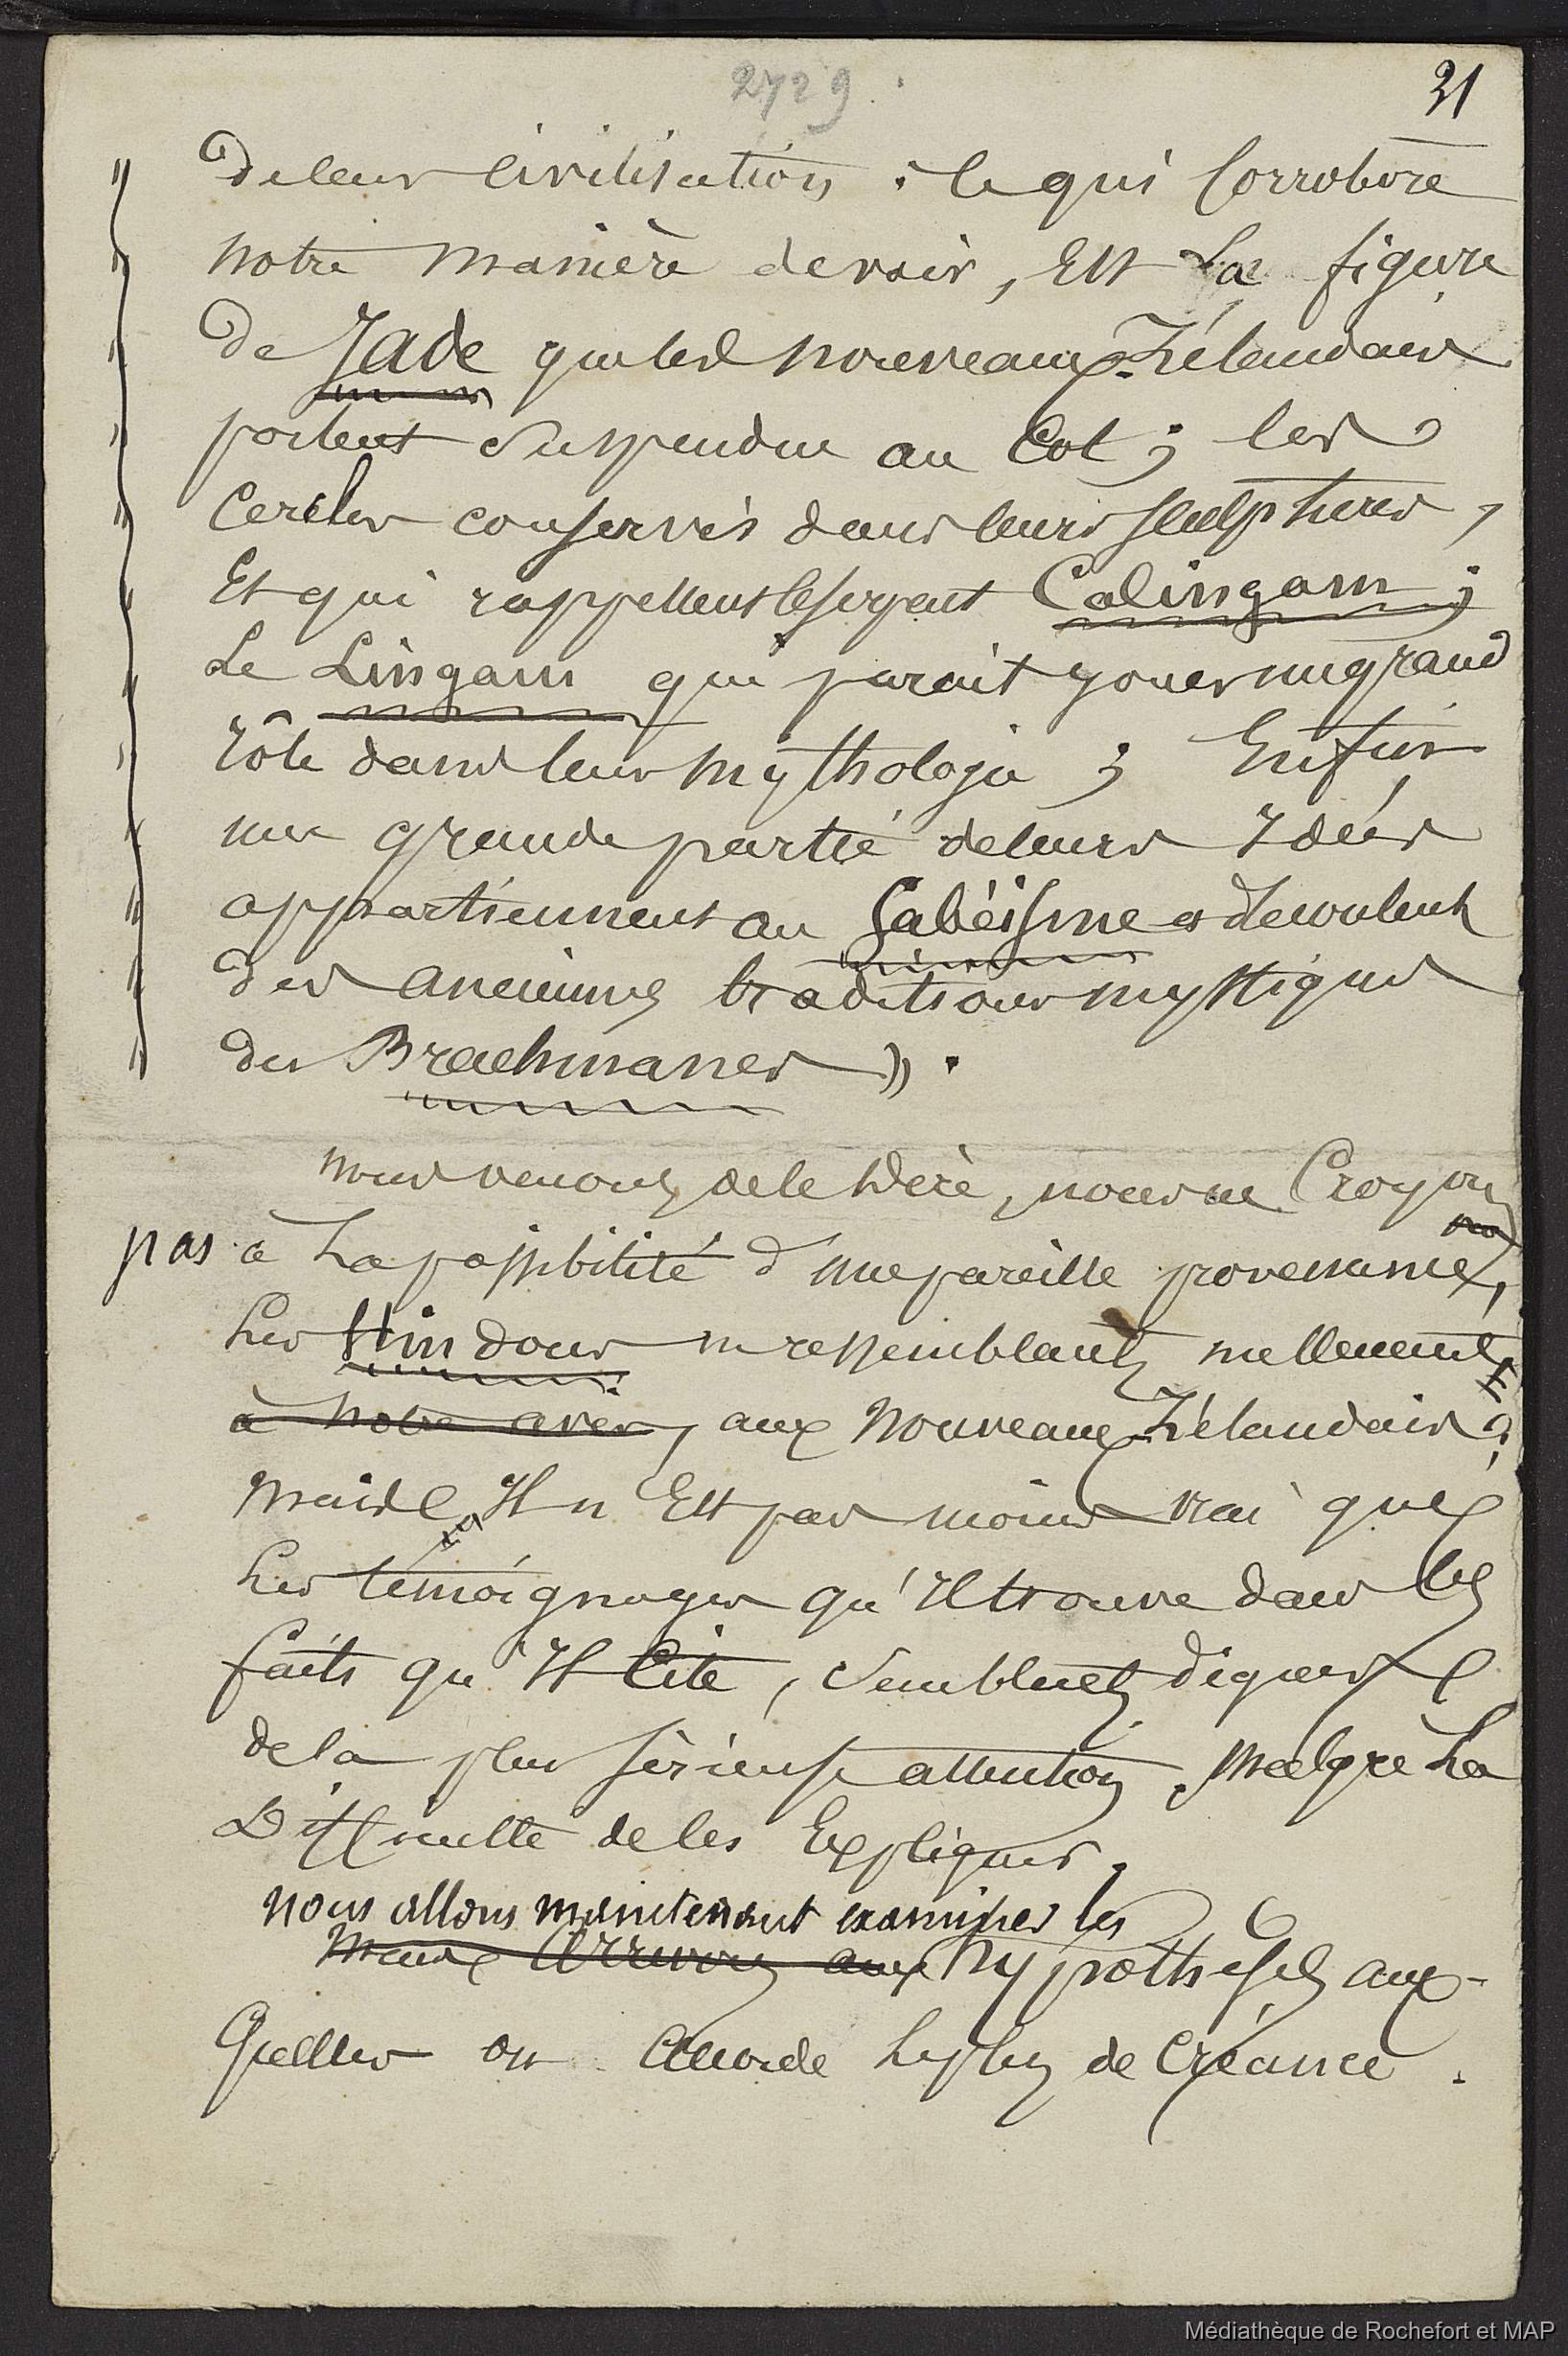 2729
31
de leur civilisation. ce qui Corrobore
notre manière de voir, Est La figure
de Jade que les nouveaux-Zélandais
portent suspendue au Col ; les
Cercles conservés dans leurs sculptures,
Et qui rappellent le serpent Calingam ;
Le Lingam qui parait jouer un grand
rôle dans leur mythologie ; Enfin
une grande partie de leurs Idées
appartiennent au Sabéisme et decoulent
des anciennes traditions mystiques
des Brachmanes ».
nous venons de le dire, nous ne Croyons
pas à La possibilité d'une pareille provenance,
Les Hindous ne ressemblant nullement
à notre avis, aux Nouveaux-Zélandais
mais Il n'Est pas moins vrai que
Les témoignages qu'Il trouve dans les
faits qu'Il Cite, semblent dignes
de la plus sérieuse attention, malgré La
Difficulté de les Expliquer.
nous allons maintenant examiner les
Mais Arrivons aux hypothèses aux-
quelles on accorde Le plus de Créance.
Médiathèque de Rochefort et MAP